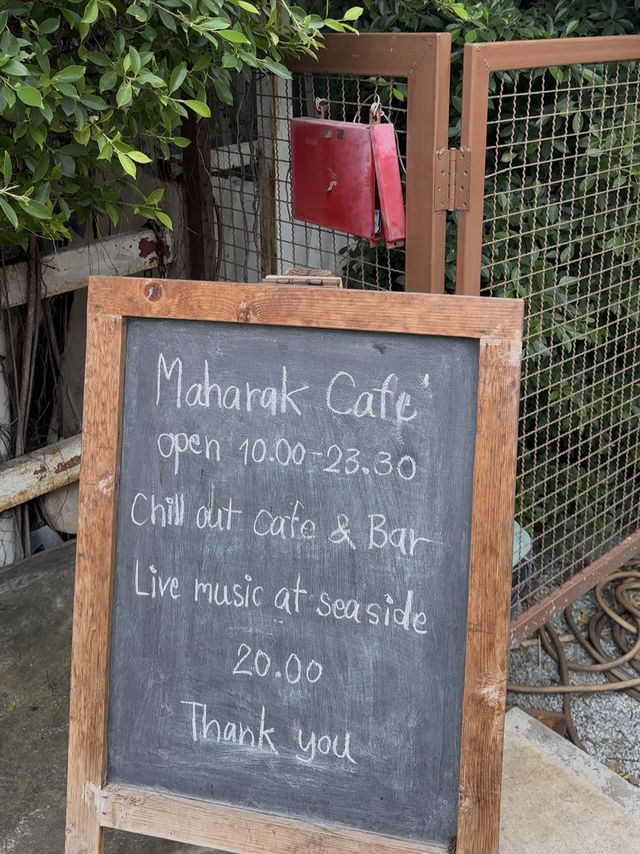 Maharak Cafe'
open 10.00-23.30
Chill out cafe & Bar
Live music at seaside
20.00
Thank you